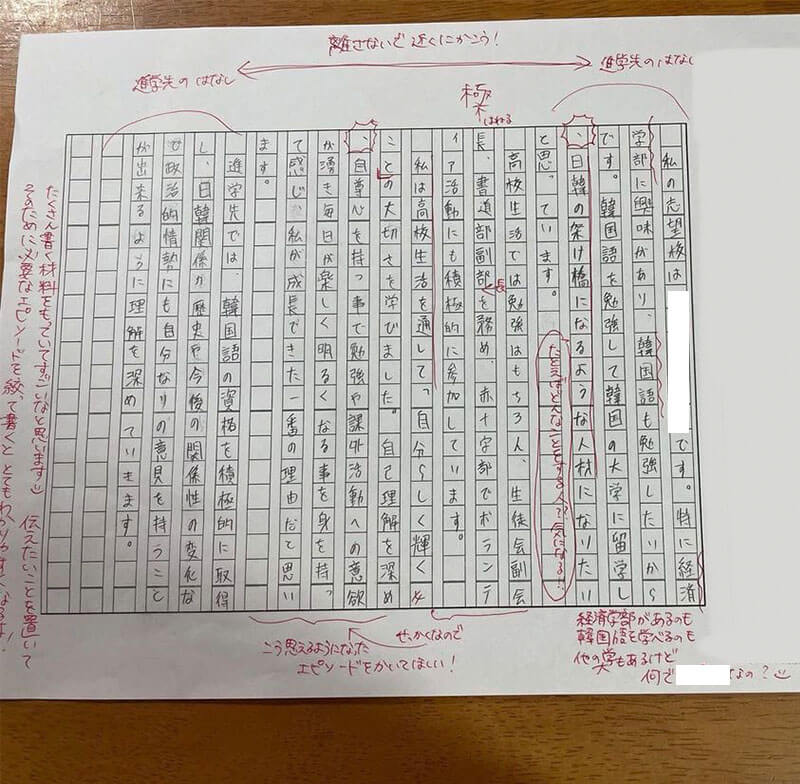 離さないで近くにかこう!
進学先のはなし
進学先のはなし
極
はねる
私の志望校は
です。特に経済
学部に興味があり、韓国語も勉強したいから
です。韓国語を勉強して韓国の大学に留学し
、日韓の架け橋になるような人材になりたい
と思っています。
たとえばどんなことをする人?気になる!
高校生活では勉強はもちろん、生徒会副会
長、書道部副部を務め、赤十字部でボランテ
長
ィア活動にも積極的に参加しています。
私は高校生活を通して、「自分らしく輝く」
ことの大切さを学びました。自己理解を深め
、自尊心を持つ事で勉強や課外活動への意欲
が湧き毎日が楽しく明るくなる事を身を持っ
て感じ、私が成長できた一番の理由だと思い
ます。
進学先では、韓国語の資格を積極的に取得
し、日韓関係の歴史や今後の関係性の変化な
ど政治的情勢にも自分なりの意見を持つこと
が出来るように理解を深めていきます。
経済学部があるのも
韓国語を学べるのも
他の大学もあるけど
何で
なの?
せっかくなので
こう思えるようになった
エピソードをかいてほしい!
たくさん書く材料をもっていてすごいなと思います 伝えたいことを置いて
そのために必要なエピソードを絞って書くととてもわかりやすくなるよ!